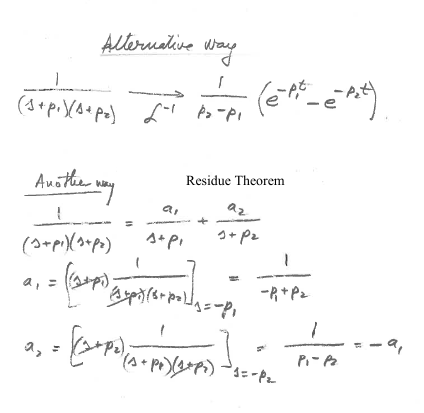 Alternative way
1/((s+p₁)(s+p₂)) ⟶ ℒ⁻¹ 1/(p₂-p₁) (e^{-p₁t} - e^{-p₂t})
Another way Residue Theorem
1/((s+p₁)(s+p₂)) = a₁/(s+p₁) + a₂/(s+p₂)
a₁ = [(s+p₁) 1/((s+p₁)(s+p₂))]_{s=-p₁} = 1/(-p₁+p₂)
a₂ = [(s+p₂) 1/((s+p₁)(s+p₂))]_{s=-p₂} = 1/(p₁-p₂) = -a₁